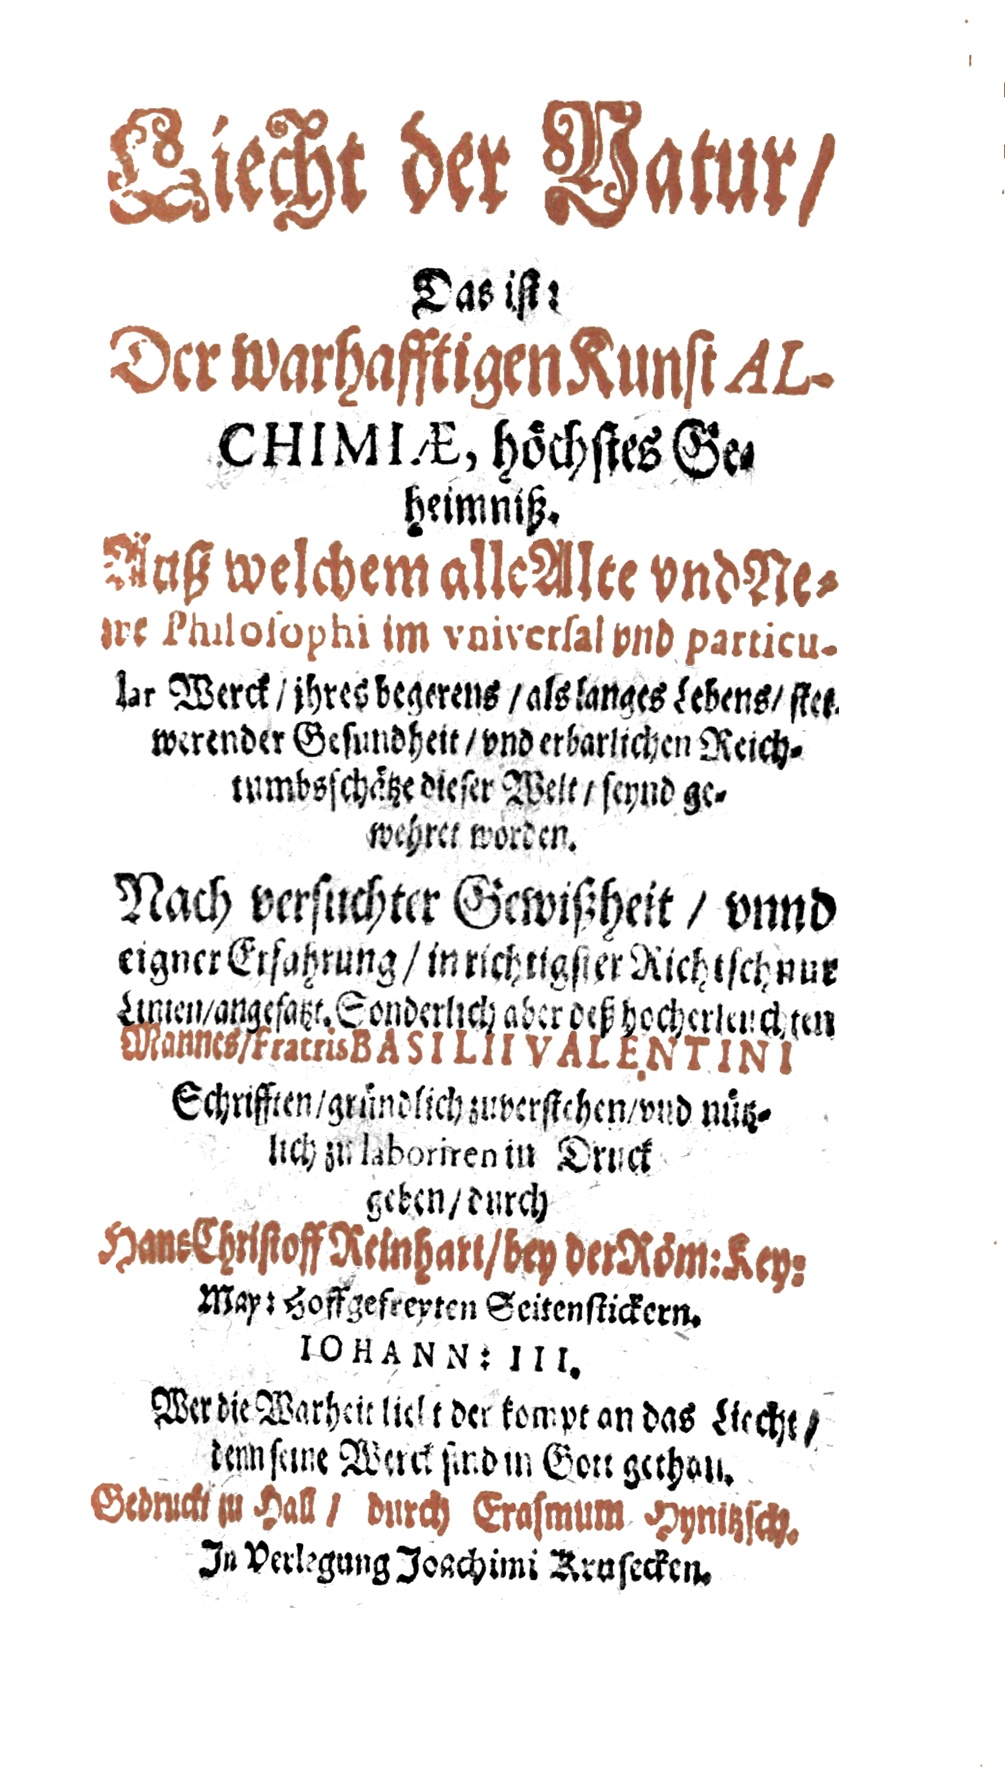 Liecht der Natur/
Das ist:
Der warhafftigen Kunst AL-
CHIMIÆ, höchstes Ge-
heimniß.
Auß welchem alle Alte vnd Ne-
we Philosophi im vniversal vnd particu-
lar Werck / jhres begerens / als langes Lebens / stet-
werender Gesundheit / vnd erbarlichen Reich-
tumbsschätze dieser Welt / seynd ge-
wehret worden.
Nach versuchter Gewißheit / vnnd
eigner Erfahrung / in richtigster Richtschnur
Linien/angesatzt. Sonderlich aber deß hocherleuchten
Mannes/Fratris BASILII VALENTINI
Schrifften/gründlich zuverstehen/vnd nütz-
lich zu laboriren in Druck
geben/durch
Hans Christoff Reinhart/bey der Röm: Key:
May: Hoffgefreyten Seitenstickern.
IOHANN: III.
Wer die Warheit liebt der kompt an das Liecht /
denn seine Werck sind in Gott gethan.
Gedruckt zu Hall / durch Erasmum Hynitzsch.
In Verlegung Joachimi Krusecken.